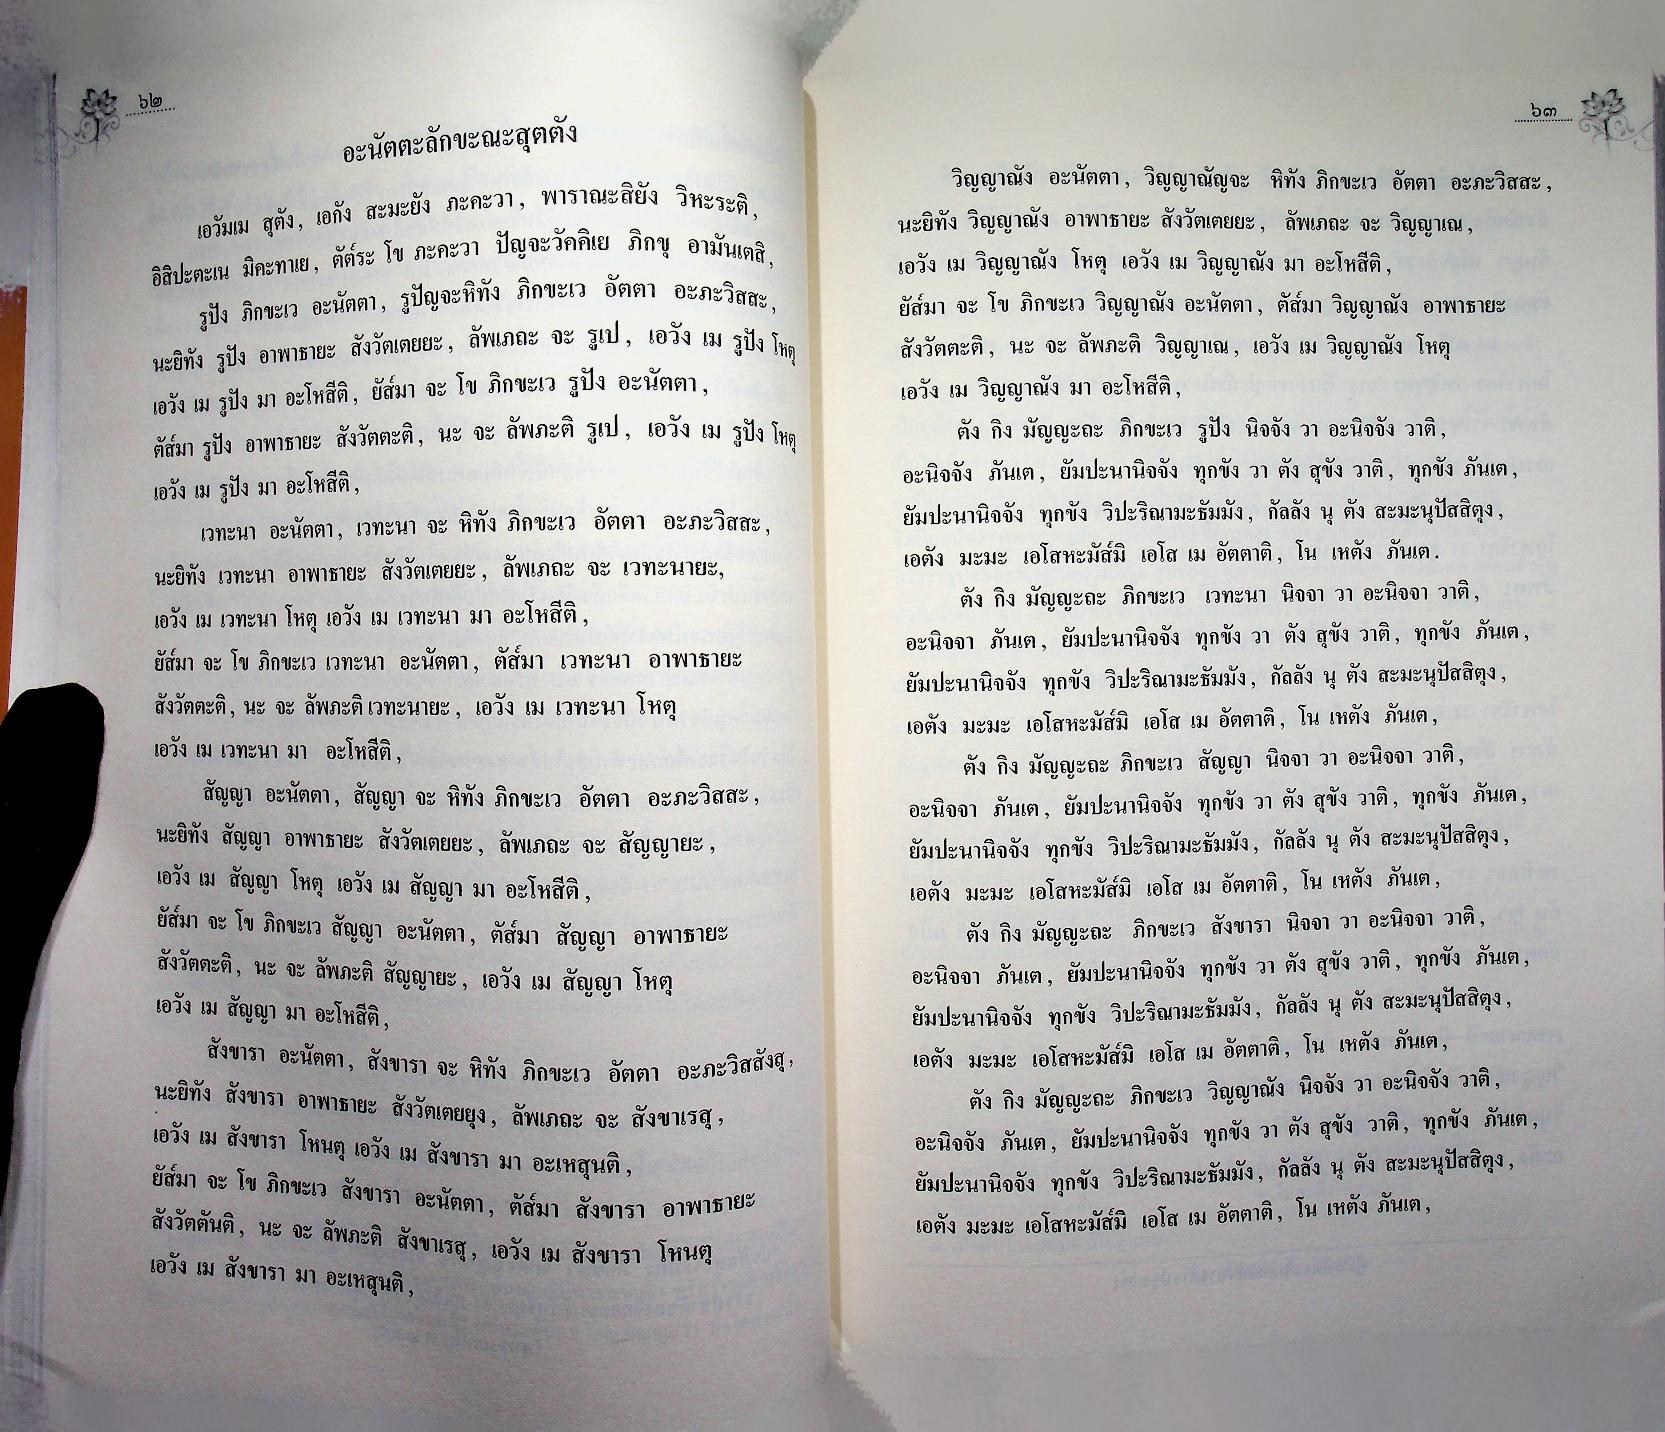 ๖๒
อะนัตตะลักขะณะสุตตัง
เอวัมเม สุตัง, เอกัง สะมะยัง ภะคะวา, พาราณะสิยัง วิหะระติ,
อิสิปะตะเน มิคะทาเย, ตัต๎ระ โข ภะคะวา ปัญจะวัคคิเย ภิกขุ อามันเตสิ,
รูปัง ภิกขะเว อะนัตตา, รูปัญจะหิทัง ภิกขะเว อัตตา อะภะวิสสะ,
นะยิทัง รูปัง อาพาธายะ สังวัตเตยยะ, ลัพเภถะ จะ รูเป, เอวัง เม รูปัง โหตุ
เอวัง เม รูปัง มา อะโหสีติ, ยัส๎มา จะ โข ภิกขะเว รูปัง อะนัตตา,
ตัส๎มา รูปัง อาพาธายะ สังวัตตะติ, นะ จะ ลัพภะติ รูเป, เอวัง เม รูปัง โหตุ
เอวัง เม รูปัง มา อะโหสีติ,
เวทะนา อะนัตตา, เวทะนา จะ หิทัง ภิกขะเว อัตตา อะภะวิสสะ,
นะยิทัง เวทะนา อาพาธายะ สังวัตเตยยะ, ลัพเภถะ จะ เวทะนายะ,
เอวัง เม เวทะนา โหตุ เอวัง เม เวทะนา มา อะโหสีติ,
ยัส๎มา จะ โข ภิกขะเว เวทะนา อะนัตตา, ตัส๎มา เวทะนา อาพาธายะ
สังวัตตะติ, นะ จะ ลัพภะติ เวทะนายะ, เอวัง เม เวทะนา โหตุ
เอวัง เม เวทะนา มา อะโหสีติ,
สัญญา อะนัตตา, สัญญา จะ หิทัง ภิกขะเว อัตตา อะภะวิสสะ,
นะยิทัง สัญญา อาพาธายะ สังวัตเตยยะ, ลัพเภถะ จะ สัญญายะ,
เอวัง เม สัญญา โหตุ เอวัง เม สัญญา มา อะโหสีติ,
ยัส๎มา จะ โข ภิกขะเว สัญญา อะนัตตา, ตัส๎มา สัญญา อาพาธายะ
สังวัตตะติ, นะ จะ ลัพภะติ สัญญายะ, เอวัง เม สัญญา โหตุ
เอวัง เม สัญญา มา อะโหสีติ,
สังขารา อะนัตตา, สังขารา จะ หิทัง ภิกขะเว อัตตา อะภะวิสสังสุ,
นะยิทัง สังขารา อาพาธายะ สังวัตเตยยุง, ลัพเภถะ จะ สังขาเรสุ,
เอวัง เม สังขารา โหนตุ เอวัง เม สังขารา มา อะเหสุนติ,
ยัส๎มา จะ โข ภิกขะเว สังขารา อะนัตตา, ตัส๎มา สังขารา อาพาธายะ
สังวัตตันติ, นะ จะ ลัพภะติ สังขาเรสุ, เอวัง เม สังขารา โหนตุ
เอวัง เม สังขารา มา อะเหสุนติ,
๖๓
วิญญาณัง อะนัตตา, วิญญาณัญจะ หิทัง ภิกขะเว อัตตา อะภะวิสสะ,
นะยิทัง วิญญาณัง อาพาธายะ สังวัตเตยยะ, ลัพเภถะ จะ วิญญาเณ,
เอวัง เม วิญญาณัง โหตุ เอวัง เม วิญญาณัง มา อะโหสีติ,
ยัส๎มา จะ โข ภิกขะเว วิญญาณัง อะนัตตา, ตัส๎มา วิญญาณัง อาพาธายะ
สังวัตตะติ, นะ จะ ลัพภะติ วิญญาเณ, เอวัง เม วิญญาณัง โหตุ
เอวัง เม วิญญาณัง มา อะโหสีติ,
ตัง กิง มัญญะถะ ภิกขะเว รูปัง นิจจัง วา อะนิจจัง วาติ,
อะนิจจัง ภันเต, ยัมปะนานิจจัง ทุกขัง วา ตัง สุขัง วาติ, ทุกขัง ภันเต,
ยัมปะนานิจจัง ทุกขัง วิปะริณามะธัมมัง, กัลลัง นุ ตัง สะมะนุปัสสิตุง,
เอตัง มะมะ เอโสหะมัส๎มิ เอโส เม อัตตาติ, โน เหตัง ภันเต.
ตัง กิง มัญญะถะ ภิกขะเว เวทะนา นิจจา วา อะนิจจา วาติ,
อะนิจจา ภันเต, ยัมปะนานิจจัง ทุกขัง วา ตัง สุขัง วาติ, ทุกขัง ภันเต,
ยัมปะนานิจจัง ทุกขัง วิปะริณามะธัมมัง, กัลลัง นุ ตัง สะมะนุปัสสิตุง,
เอตัง มะมะ เอโสหะมัส๎มิ เอโส เม อัตตาติ, โน เหตัง ภันเต,
ตัง กิง มัญญะถะ ภิกขะเว สัญญา นิจจา วา อะนิจจา วาติ,
อะนิจจา ภันเต, ยัมปะนานิจจัง ทุกขัง วา ตัง สุขัง วาติ, ทุกขัง ภันเต,
ยัมปะนานิจจัง ทุกขัง วิปะริณามะธัมมัง, กัลลัง นุ ตัง สะมะนุปัสสิตุง,
เอตัง มะมะ เอโสหะมัส๎มิ เอโส เม อัตตาติ, โน เหตัง ภันเต,
ตัง กิง มัญญะถะ ภิกขะเว สังขารา นิจจา วา อะนิจจา วาติ,
อะนิจจา ภันเต, ยัมปะนานิจจัง ทุกขัง วา ตัง สุขัง วาติ, ทุกขัง ภันเต,
ยัมปะนานิจจัง ทุกขัง วิปะริณามะธัมมัง, กัลลัง นุ ตัง สะมะนุปัสสิตุง,
เอตัง มะมะ เอโสหะมัส๎มิ เอโส เม อัตตาติ, โน เหตัง ภันเต,
ตัง กิง มัญญะถะ ภิกขะเว วิญญาณัง นิจจัง วา อะนิจจัง วาติ,
อะนิจจัง ภันเต, ยัมปะนานิจจัง ทุกขัง วา ตัง สุขัง วาติ, ทุกขัง ภันเต,
ยัมปะนานิจจัง ทุกขัง วิปะริณามะธัมมัง, กัลลัง นุ ตัง สะมะนุปัสสิตุง,
เอตัง มะมะ เอโสหะมัส๎มิ เอโส เม อัตตาติ, โน เหตัง ภันเต,